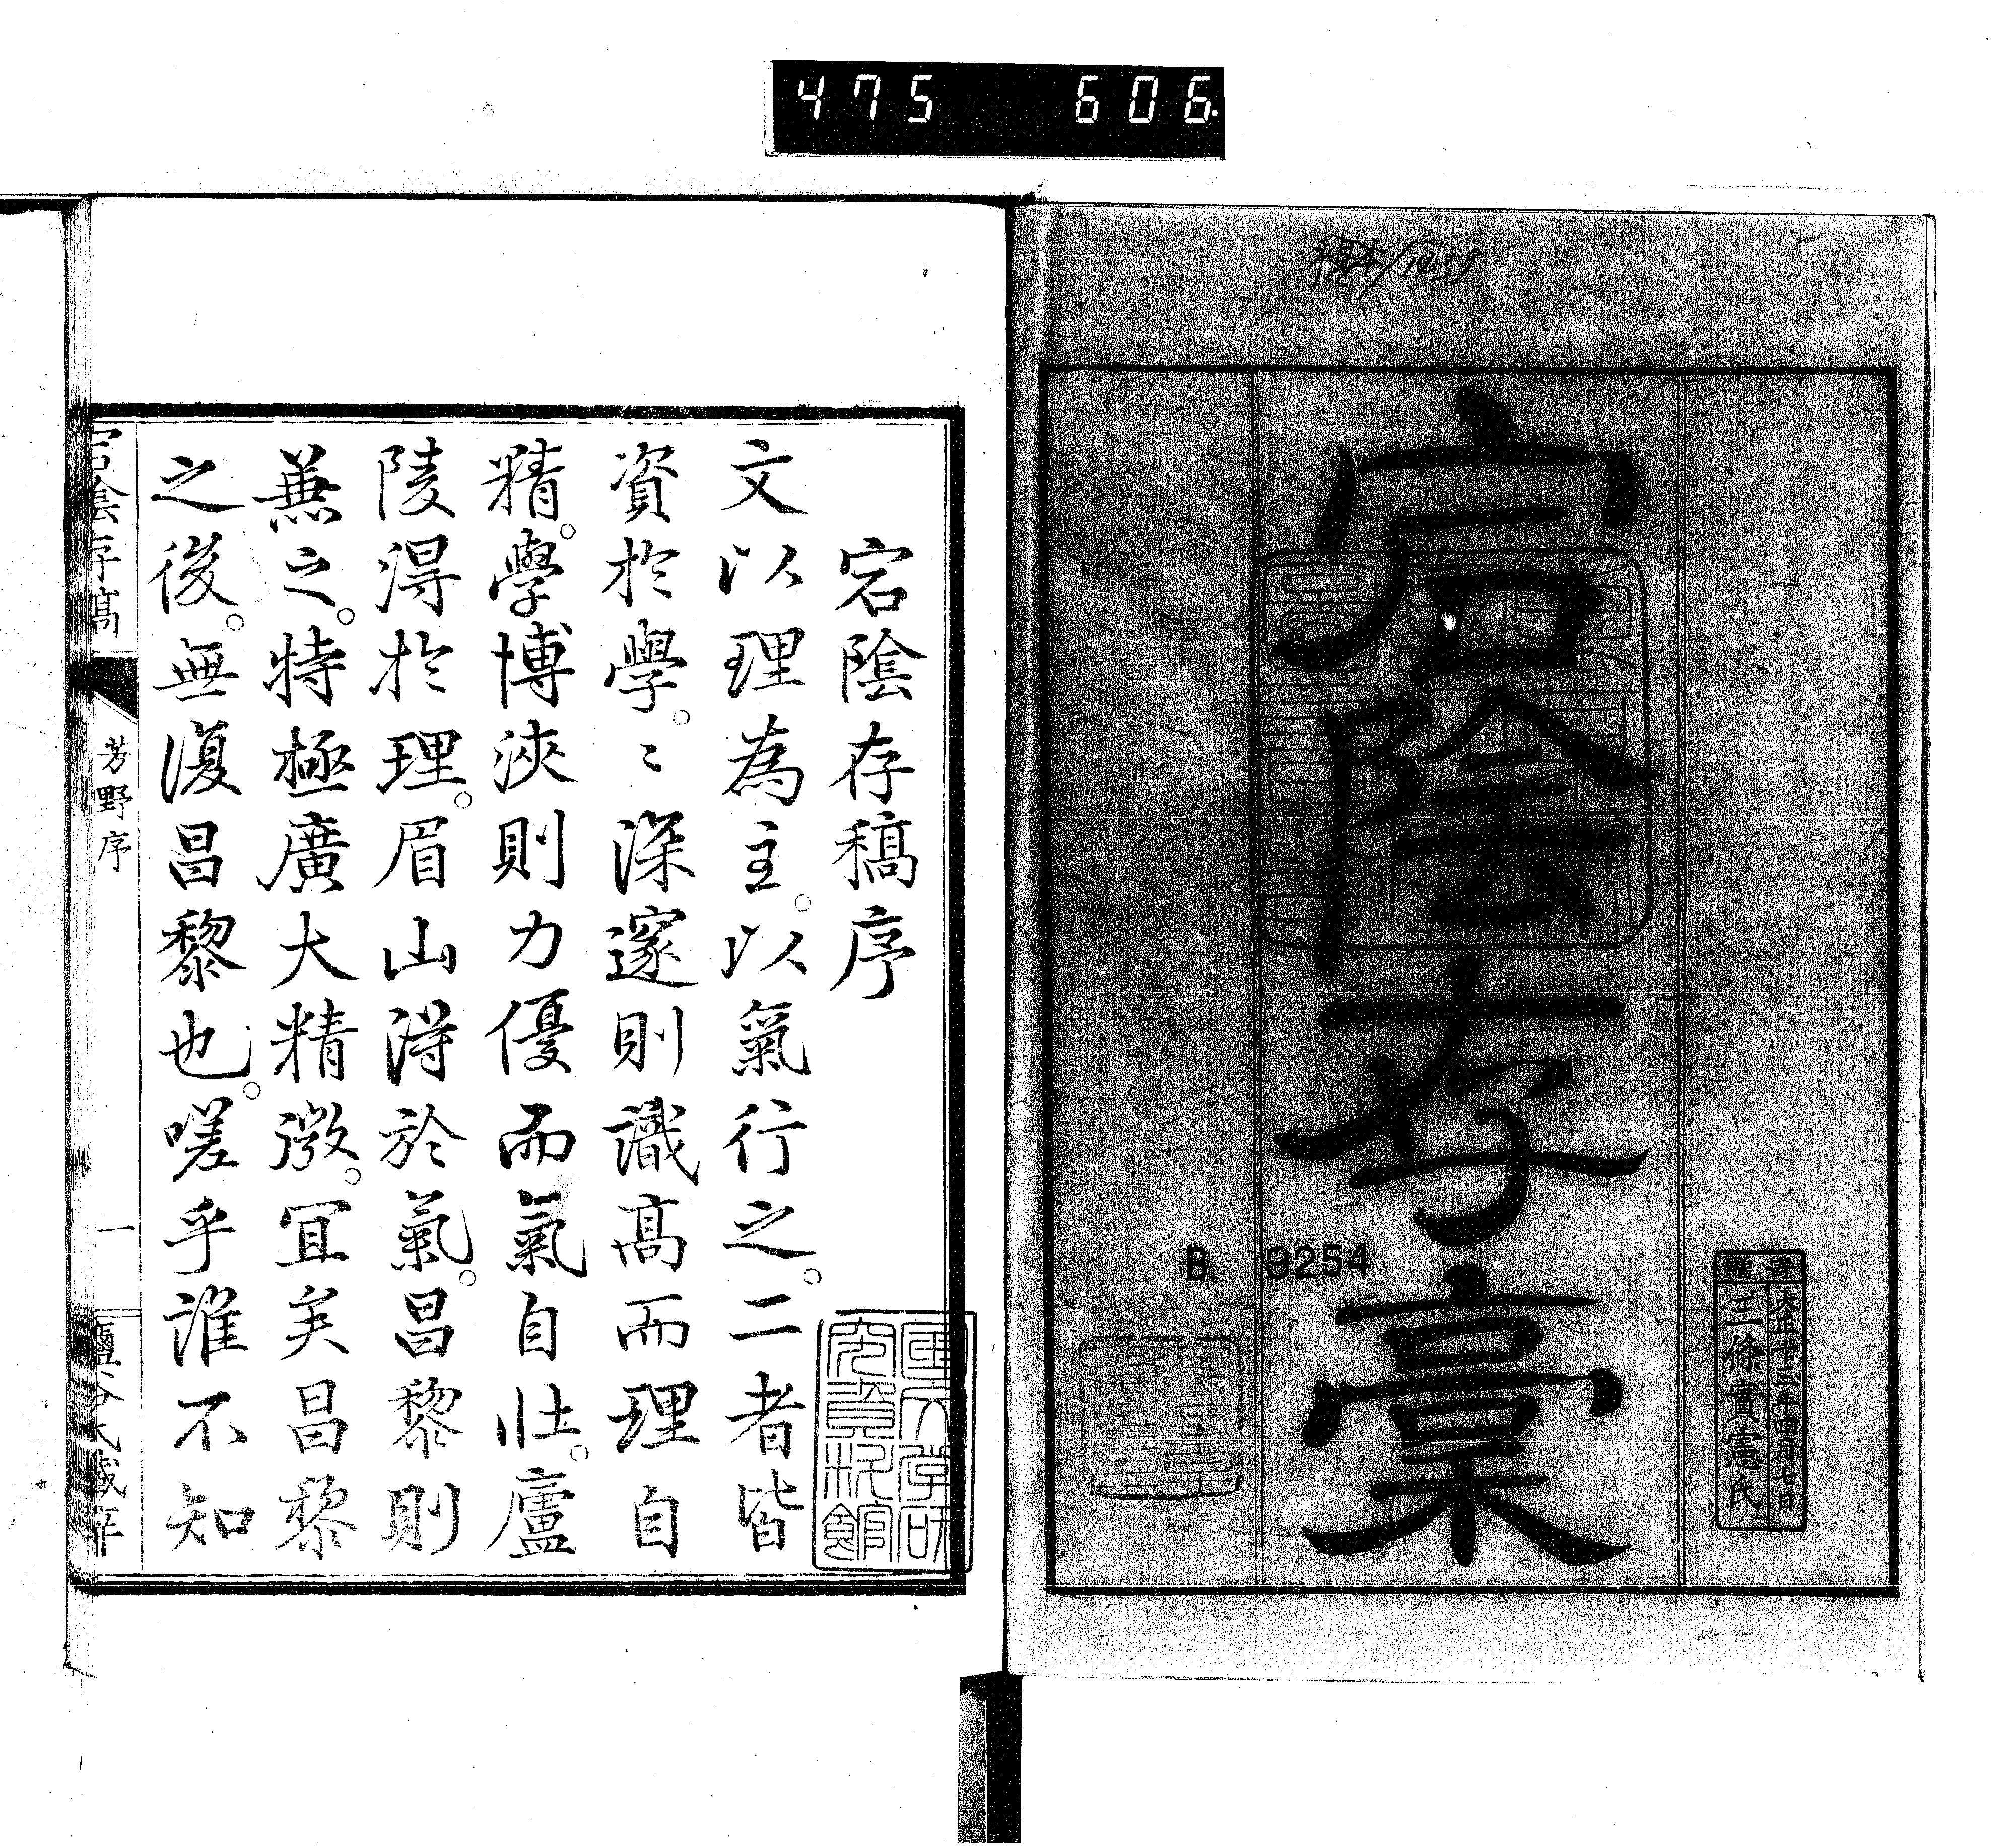 475 606
宕陰存稾
B 9254
寄贈
大正十三年四月七日
三條實憲氏
宕陰存稿序
文以理為主。以氣行之。二者皆
資於學。〻深邃則識高而理自
精。學博浹則力優而氣自壯。廬
陵得於理。眉山得於氣。昌黎則
兼之。特極廣大精微。宜矣昌黎
之後。無復昌黎也。嗟乎誰不知
宕陰存稿
芳野序
一
國文学研
究資料館